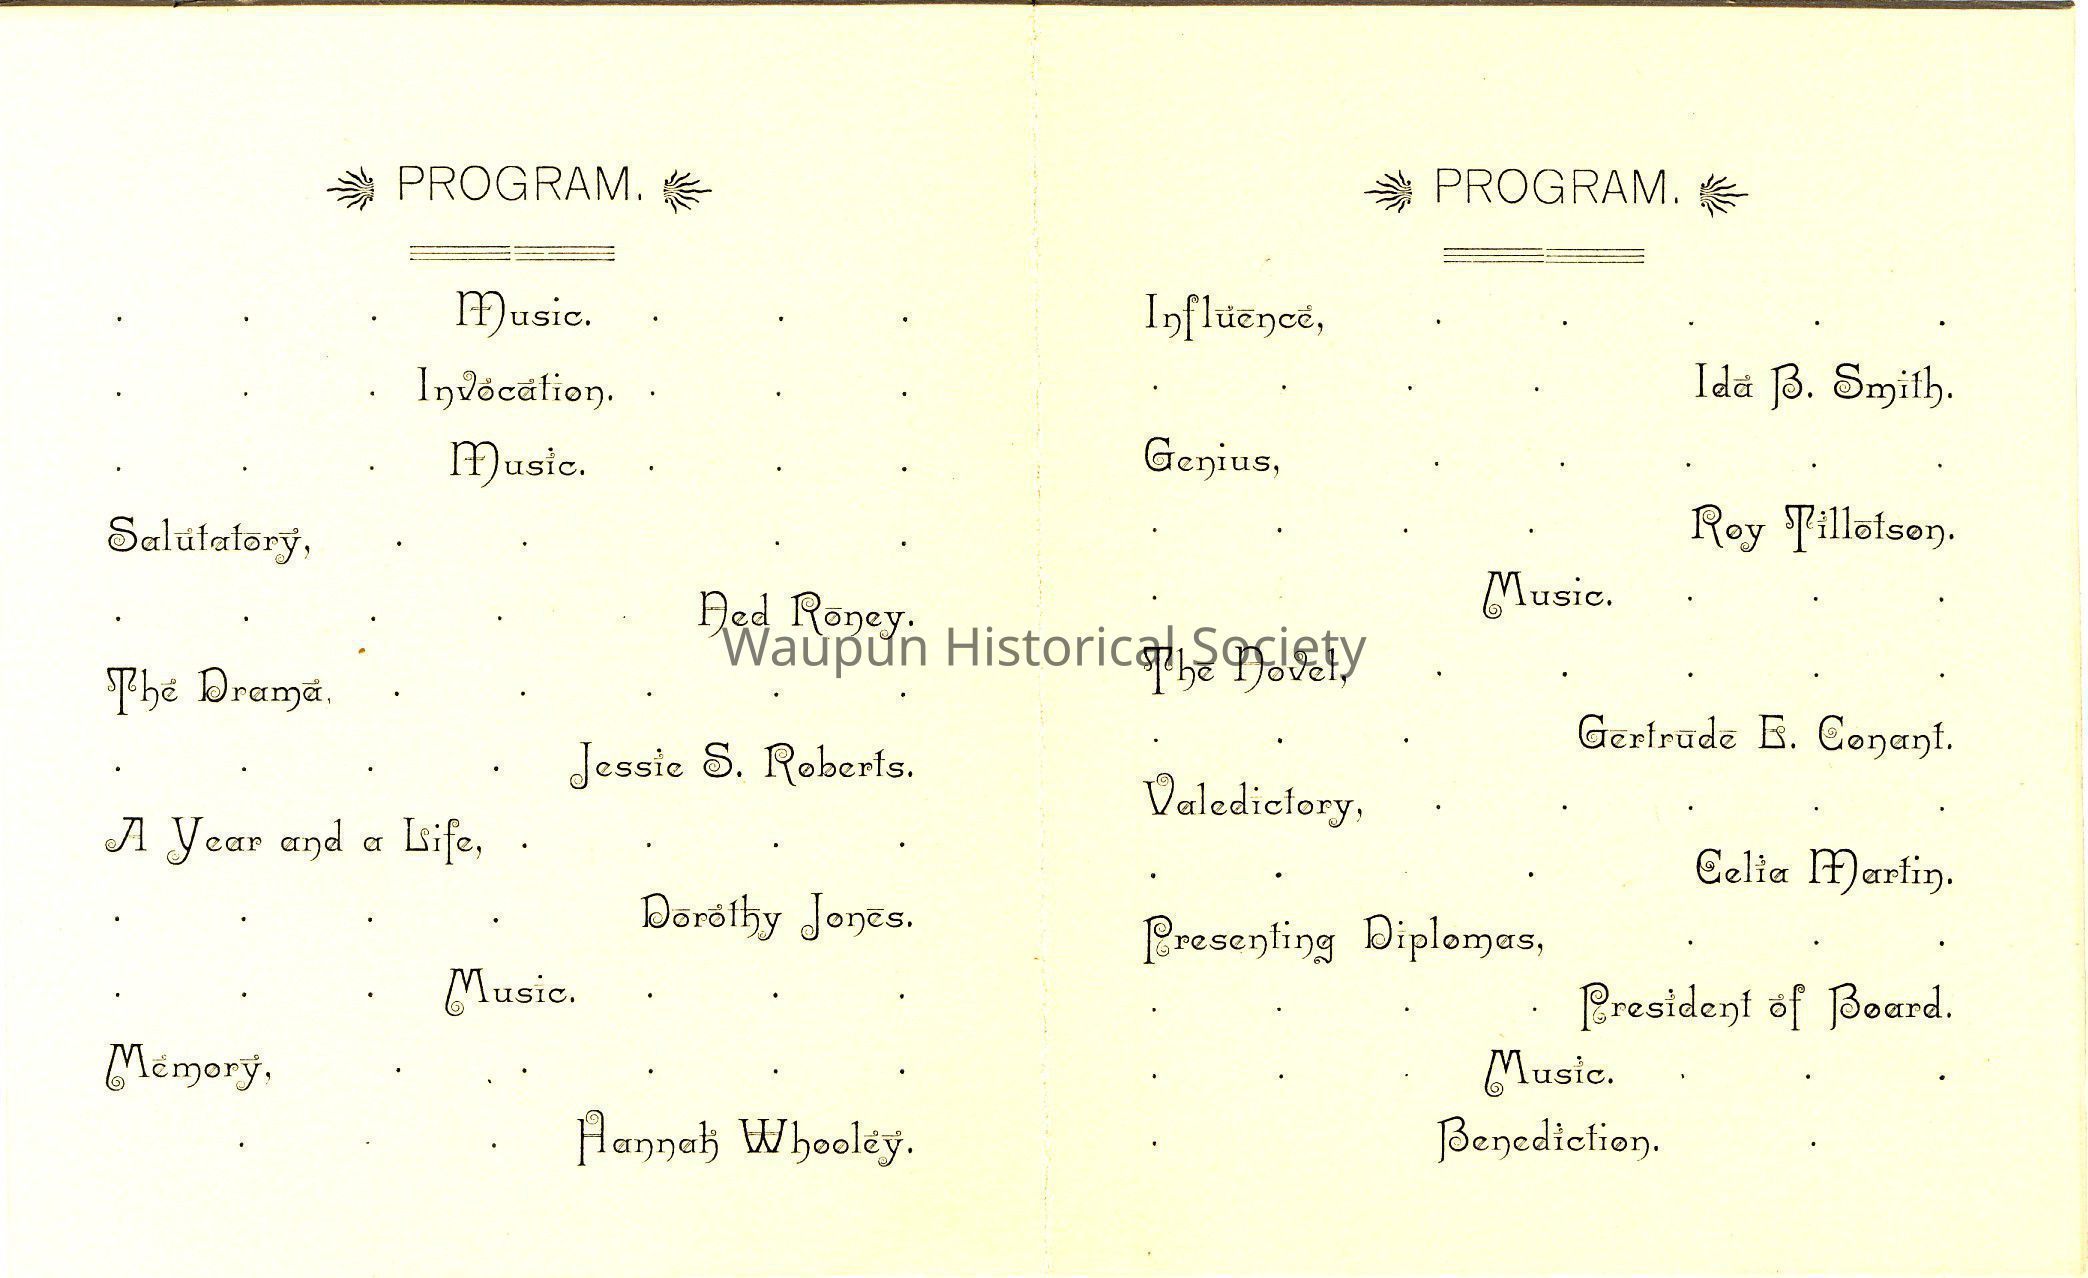 PROGRAM.
. . . Music. . . .
. . . Invocation. . . .
. . . Music. . . .
Salutatory, . . . .
. . . . . Ned Roney.
The Drama, . . . . .
. . . . Jessie S. Roberts.
A Year and a Life, . . . .
. . . . Dorothy Jones.
. . . Music. . . .
Memory, . . . . .
. . . Hannah Whooley.
PROGRAM.
Influence, . . . . .
. . . . Ida B. Smith.
Genius, . . . . .
. . . . Roy Tillotson.
. Music. . . .
The Novel, . . . . .
. . . Gertrude E. Conant.
Valedictory, . . . . .
. . . . Celia Martin.
Presenting Diplomas, . . .
. . . . President of Board.
. . . Music. . . .
. Benediction. .
Waupun Historical Society